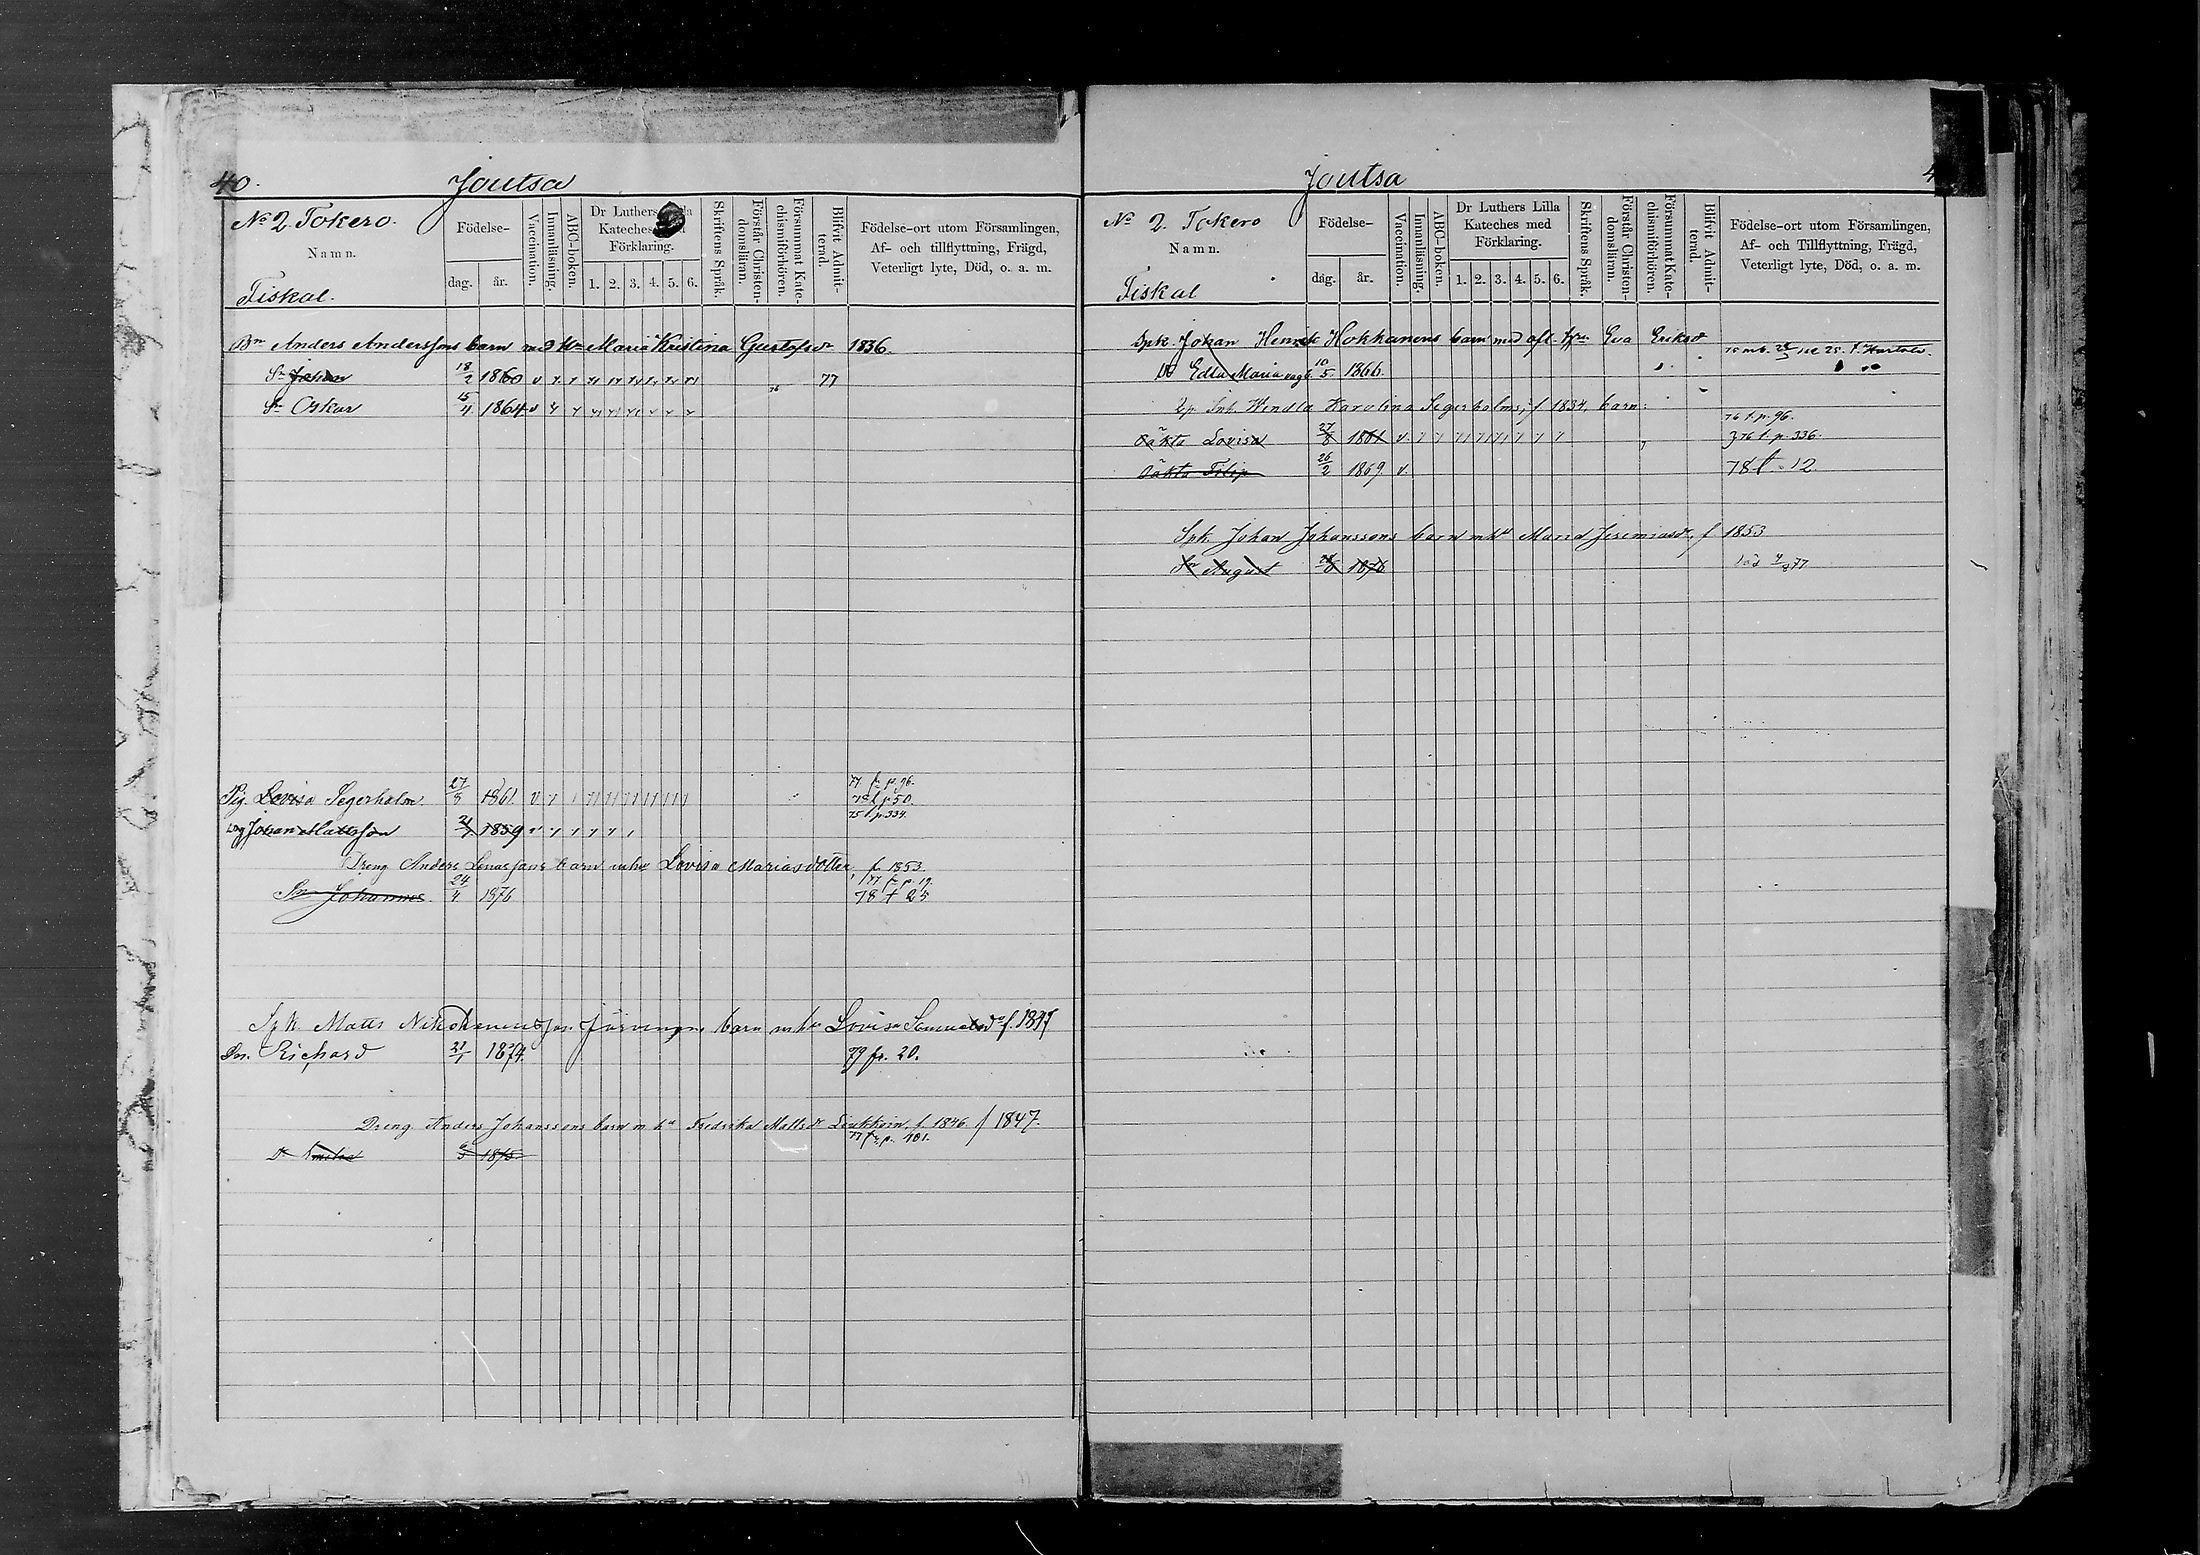 40.
Joutsa
No 2 Tokero.
Namn.
Fiskal.
Födelse-
dag.
år.
Vaccination.
Innanläsning.
ABC-boken.
Dr Luthers
Kateches
Förklaring.
1. 2. 3. 4. 5. 6.
Skriftens Språk.
Förstår Christen-
domsläran.
Försummat Kate-
chismiförhören.
Blifvit Admit-
terad.
Födelse-ort utom Församlingen,
Af- och tillflyttning, Frägd,
Veterligt lyte, Död, o. a. m.
Bn Anders Anderssons barn med Maria Kristina Gustafsdr 1836.
Sn Johan 18/2 1860 77
Sn Oskar 15/4 1864
77 fr p. 96.
Pig. Lovisa Segerholm 27/8 1861. 78 t p. 50.
75 t. p. 334.
Johan Mattsson 1859
Dreng Anders barn mhu Lovisa Mariasdotter, f. 1853.
177 fr p. 19.
Sn Johannes. 24/4 1876 78 t 25
Spk. Matts barn mhu Lovisa
Sn. Richard 21/1 1874. 79 fr. 20.
Dreng Anders Johanssons barn m hu Fredrika Mattsdr f. 1846. f 1847.
77 fr p. 101.
Dr 1875
Joutsa
No 2. Tokero
Namn.
Fiskal
Födelse-
dag.
år.
Vaccination.
Innanläsning.
ABC-boken.
Dr Luthers Lilla
Kateches med
Förklaring.
1. 2. 3. 4. 5. 6.
Skriftens Språk.
Förstår Christen-
domsläran.
Försummat Kate-
chismiförhören.
Blifvit Admit-
terad.
Födelse-ort utom Församlingen,
Af- och Tillflyttning, Frägd,
Veterligt lyte, Död, o. a. m.
Spk. Johan Henrik Hokkanens barn med afl. Eva Eriksdr
Dr Edla Maria 10/5 1866.
Inh. Wendla Karolina Segerholms, f 1834, barn:
76 t. p. 96.
Oäkta Lovisa 27/8 1861 v. 376 t. p. 336.
Oäkta Filip 26/2 1869 v. 78 t 12
Spk. Johan Johanssons barn mhu Maria Jeremiasdr, f 1853
Sn August 1876 77